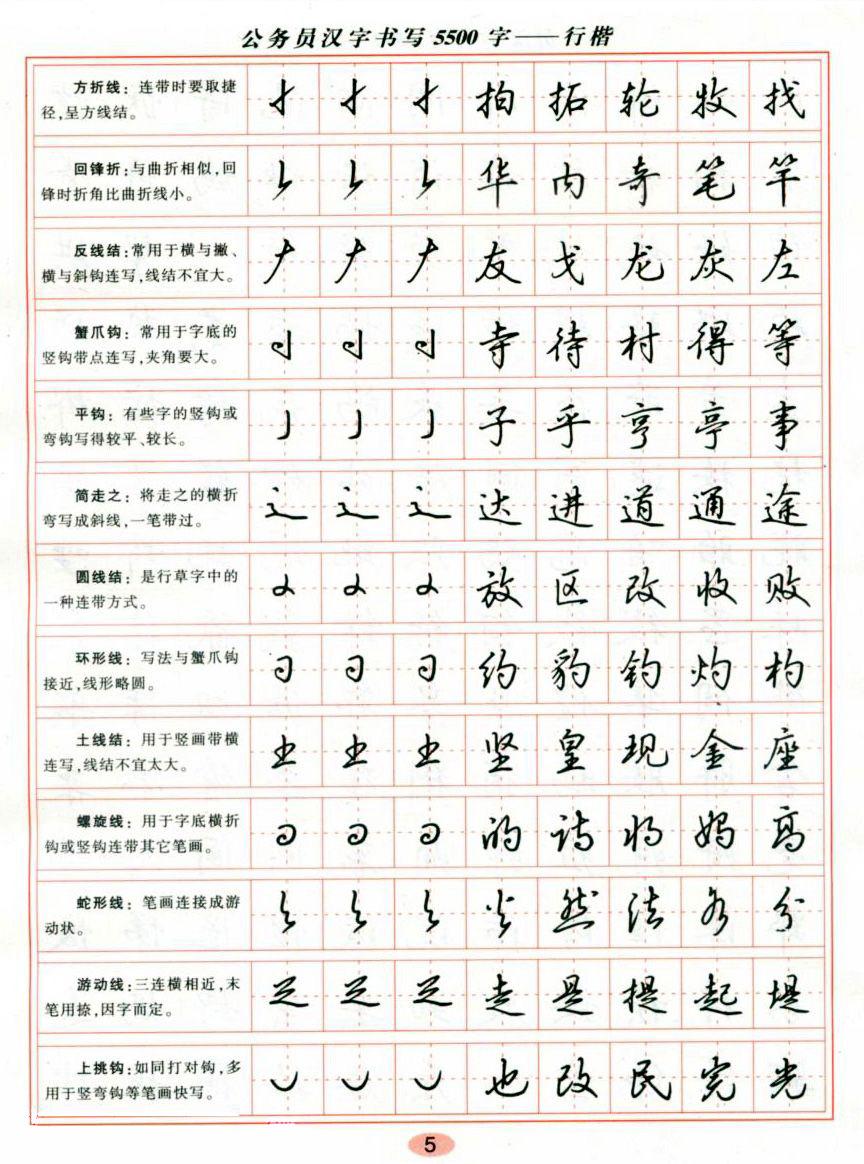 公务员汉字书写 5500 字——行楷
方折线：连带时要取捷
径,呈方线结。
拍 拓 轮 牧 找
回锋折:与曲折相似,回
锋时折角比曲折线小。
华 内 奇 笔 竿
反线结:常用于横与撇、
横与斜钩连写,线结不宜大。
友 戈 龙 灰 左
蟹爪钩：常用于字底的
竖钩带点连写,夹角要大。
寺 待 村 得 等
平钩：有些字的竖钩或
弯钩写得较平、较长。
子 乎 亨 亭 事
简走之：将走之的横折
弯写成斜线,一笔带过。
达 进 道 通 途
圆线结：是行草字中的
一种连带方式。
放 区 改 收 败
环形线：写法与蟹爪钩
接近,线形略圆。
约 豹 钓 灼 杓
土线结：用于竖画带横
连写,线结不宜太大。
坚 皇 现 金 座
螺旋线：用于字底横折
钩或竖钩连带其它笔画。
的 诗 将 妈 高
蛇形线：笔画连接成游
动状。
然 法 分
游动线:三连横相近,末
笔用捺,因字而定。
走 是 提 起 堤
上挑钩:如同打对钩,多
用于竖弯钩等笔画快写。
也 改 民 完 光
5